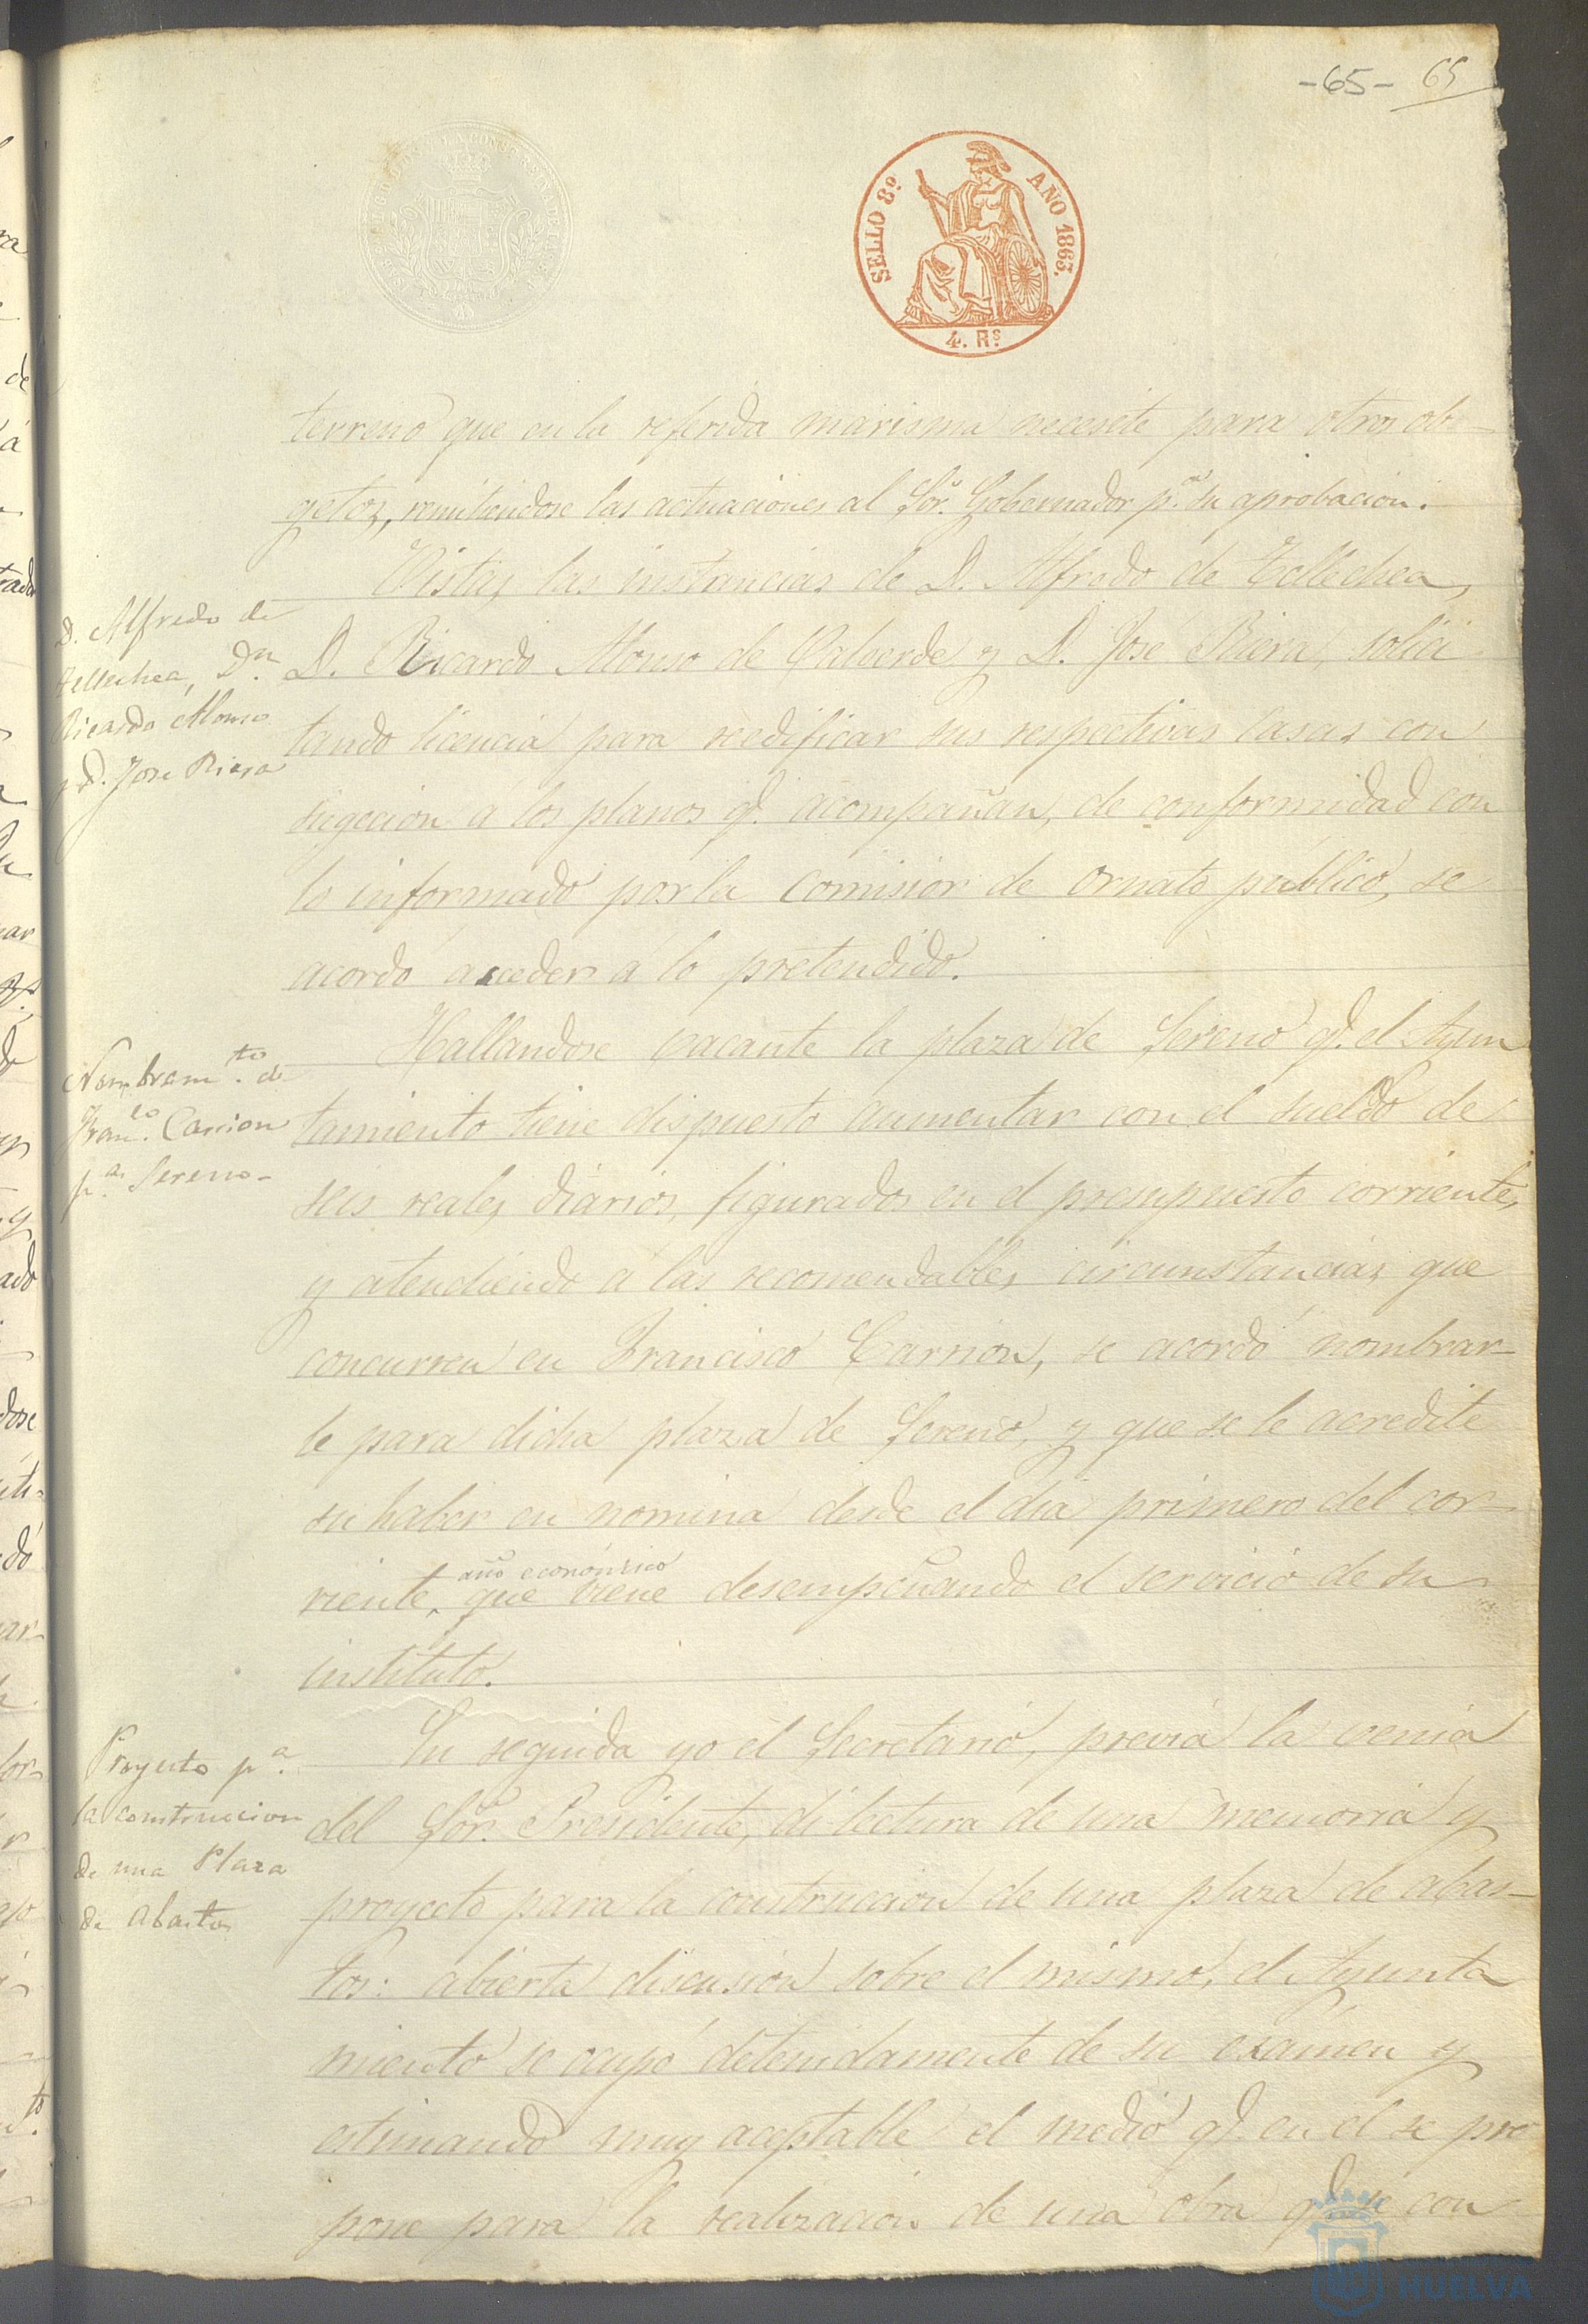 -65- 65
SELLO 8º AÑO 1863.
4. Rs
terreno que en la referida marisma necesite para otros ob-
getos, remitiendose las actuaciones al Sor. Gobernador pa. su aprobacion.
D. Alfredo de
Tellechea, Dn.
Ricardo Alonso
y D. Jose Riera
Vistas las instancias de D. Alfredo de Tellechea,
D. Ricardo Alonso de Valverde y D. José Riera, solici
tando licencia para reedificar sus respectivas casas con
sugecion á los planos q. acompañan, de conformidad con
lo informado por la Comision de Ornato público, se
acordo acceder á lo pretendido.
Nombramto. de
Franco. Carrion
pa. Sereno-
Hallandose vacante la plaza de Sereno q. el Ayun
tamiento tiene dispuesto aumentar con el sueldo de
seis reales diarios, figurados en el presupuesto corriente,
y atendiendo á las recomendables circunstancias que
concurren en Francisco Carrion, se acordó nombrar-
le para dicha plaza de Sereno, y que se le acredite
su haber en nomina desde el dia primero del cor-
año económico
riente, que viene desempeñando el servicio de su
instituto.
Proyecto pa.
la construccion
de una Plaza
de Abastos
En seguida yo el Secretario, previa la venia
del Sor. Presidente, di lectura de una memoria y
proyecto para la construccion de una plaza de abas-
tos: abierta discusion sobre el mismo, el Ayunta
miento se ocupó detenidamente de su exámen y
estimando muy aceptable el medio q. en el se pro
pone para la realizacion de una obra q. se con
HUELVA